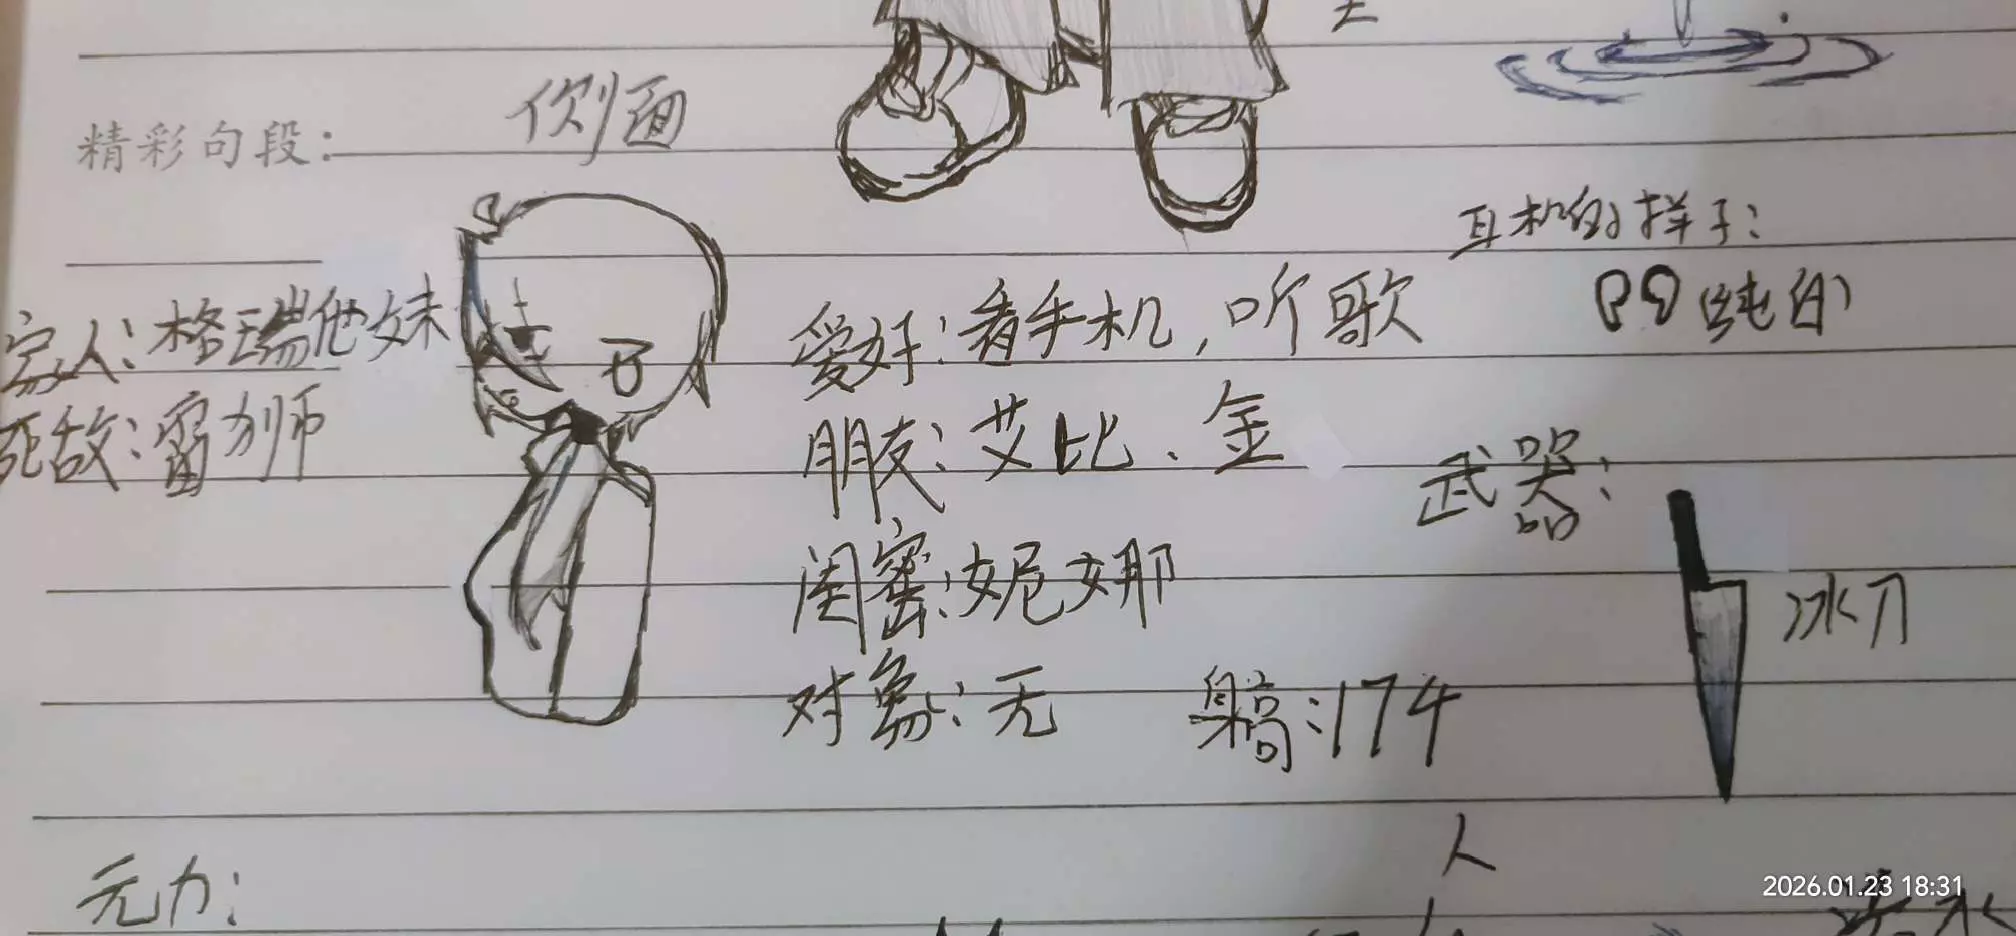 精彩句段:
侧面
耳机的样子:
(纯白)
家人:格瑞他妹
死敌:雷狮
爱好:看手机,听歌
朋友:艾比、金
闺密:妮娜
对象:无
身高:174
武器:
冰刀
元力:
人
2026.01.23 18:31